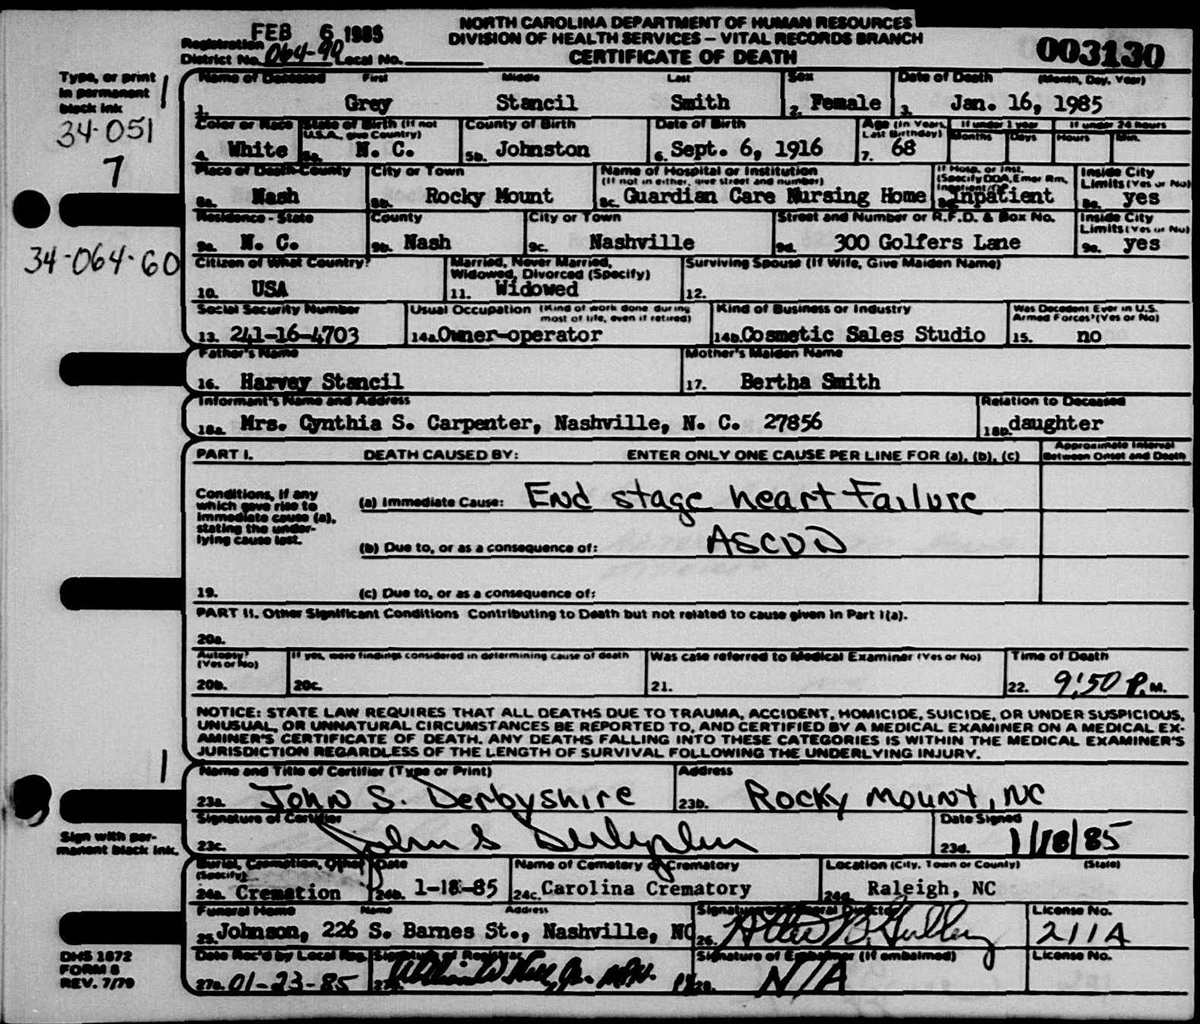 FEB 6 1985
NORTH CAROLINA DEPARTMENT OF HUMAN RESOURCES
DIVISION OF HEALTH SERVICES – VITAL RECORDS BRANCH
CERTIFICATE OF DEATH
Registration District No. 064-90 Local No.
003130
Type, or print in permanent black ink
34-051
7
34-064-60
Name of Deceased First Middle Last Sex Date of Death (Month, Day, Year)
1. Grey Stancil Smith 2. Female 3. Jan. 16, 1985
Color or Race State of Birth (If not U.S.A., give Country) County of Birth Date of Birth Age (In Years, Last Birthday) If under 1 year Months Days If under 24 hours Hours Min.
4. White 5a. N. C. 5b. Johnston 6. Sept. 6, 1916 7. 68
Place of Death-County City or Town Name of Hospital or Institution (If not in either, give street and number) If Hosp. or Inst. (Specify DOA, Emer Rm, Inpatient/OP Inside City Limits (Yes or No)
8a. Nash 8b. Rocky Mount 8c. Guardian Care Nursing Home 8d. Inpatient 8e. yes
Residence - State County City or Town Street and Number or R.F.D. & Box No. Inside City Limits (Yes or No)
9a. N. C. 9b. Nash 9c. Nashville 9d. 300 Golfers Lane 9e. yes
Citizen of What Country? Married, Never Married, Widowed, Divorced (Specify) Surviving Spouse (If Wife, Give Maiden Name)
10. USA 11. Widowed 12.
Social Security Number Usual Occupation (Kind of work done during most of life, even if retired) Kind of Business or Industry Was Decedent Ever in U.S. Armed Forces? (Yes or No)
13. 241-16-4703 14a. Owner-operator 14b. Cosmetic Sales Studio 15. no
Father's Name Mother's Maiden Name
16. Harvey Stancil 17. Bertha Smith
Informant's Name and Address Relation to Deceased
18a. Mrs. Cynthia S. Carpenter, Nashville, N. C. 27856 18b. daughter
PART I. DEATH CAUSED BY: ENTER ONLY ONE CAUSE PER LINE FOR (a), (b), (c) Approximate Interval Between Onset and Death
Conditions, if any which gave rise to immediate cause (a), stating the underlying cause last.
(a) Immediate Cause: End stage heart Failure
(b) Due to, or as a consequence of: ASCVD
19. (c) Due to, or as a consequence of:
PART II. Other Significant Conditions Contributing to Death but not related to cause given in Part I(a).
20a.
Autopsy? (Yes or No) If yes, were findings considered in determining cause of death Was case referred to Medical Examiner (Yes or No) Time of Death
20b. 20c. 21. 22. 9:50 P.M.
NOTICE: STATE LAW REQUIRES THAT ALL DEATHS DUE TO TRAUMA, ACCIDENT, HOMICIDE, SUICIDE, OR UNDER SUSPICIOUS,
UNUSUAL, OR UNNATURAL CIRCUMSTANCES BE REPORTED TO, AND CERTIFIED BY A MEDICAL EXAMINER ON A MEDICAL EX-
AMINER'S CERTIFICATE OF DEATH. ANY DEATHS FALLING INTO THESE CATEGORIES IS WITHIN THE MEDICAL EXAMINER'S
JURISDICTION REGARDLESS OF THE LENGTH OF SURVIVAL FOLLOWING THE UNDERLYING INJURY.
Name and Title of Certifier (Type or Print) Address
23a. John S. Derbyshire 23b. Rocky Mount, NC
Sign with permanent black ink.
Signature of Certifier Date Signed
23c. John S Derbyshire 23d. 1/18/85
Burial, Cremation, Other (Specify) Date Name of Cemetery or Crematory Location (City, Town or County) (State)
24a. Cremation 24b. 1-18-85 24c. Carolina Crematory 24d. Raleigh, NC
Funeral Home Name Address Signature of Funeral Director License No.
25. Johnson, 226 S. Barnes St., Nashville, NC 26. 2114
DHS 1872
FORM 8
REV. 7/79
Date Rec'd by Local Reg. Signature of Registrar Signature of Embalmer (if embalmed) License No.
27a. 01-23-85 28. N/A